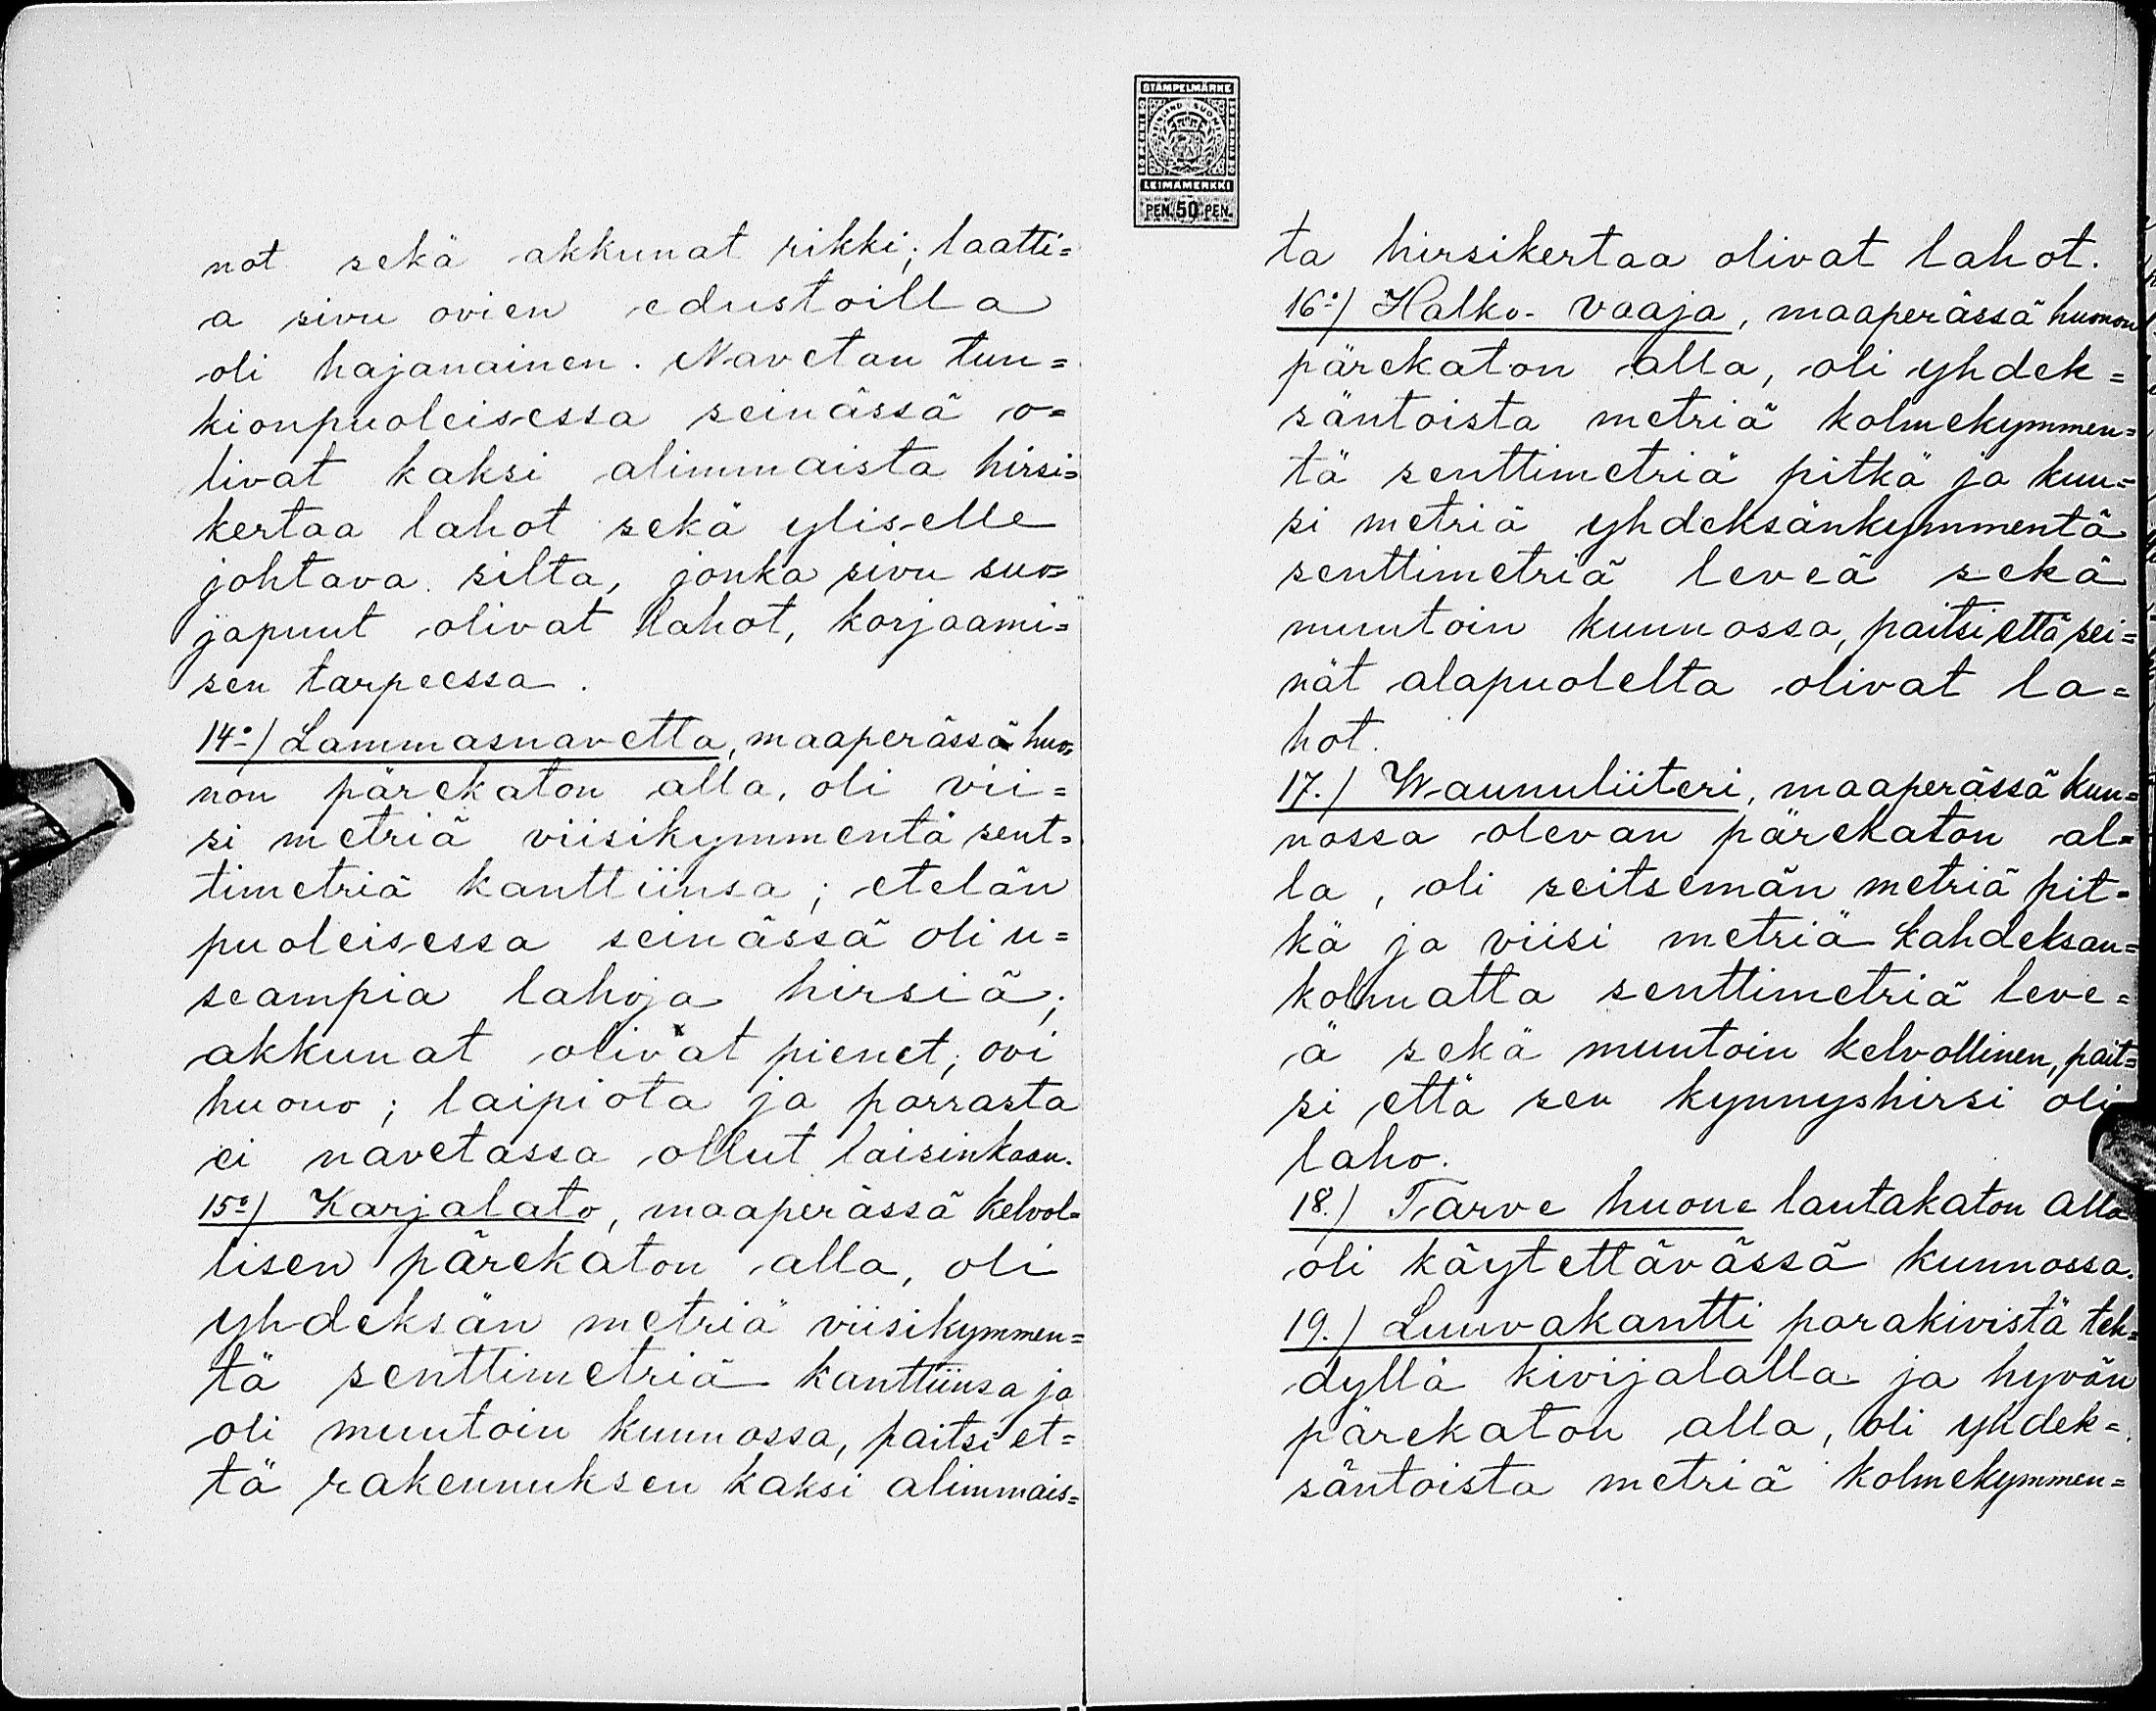 not sekä akkunat rikki; laatti=
a sivu ovien edustoilla
oli hajanainen. Navetan tun=
kionpuoleisessa seinässä o=
livat kaksi alimmaista hirsi=
kertaa lahot sekä yliselle
johtava silta, jonka sivu suo=
japuut olivat lahot, korjaami=
sen tarpeessa.
14:o/ Lammasnavetta, maaperässä huo=
non pärekaton alla, oli vii=
si metriä viisikymmentä sent=
timetriä kanttiinsa; etelän
puoleisessa seinässä oli u=
seampia lahoja hirsiä;
akkunat olivat pienet; ovi
huono; laipiota ja parrasta
ei navetassa ollut laisinkaan.
15:o/ Karjalato, maaperässä kelvol=
lisen pärekaton alla, oli
yhdeksän metriä viisikymmen=
tä senttimetriä kanttiinsa ja
oli muutoin kunnossa, paitsi et=
tä rakennuksen kaksi alimmais=
STÄMPELMÄRKE
FINLAND SUOMI
LEIMAMERKKI
PEN. 50 PEN.
ta hirsikertaa olivat lahot.
16:o/ Halko-vaaja, maaperässä huonon
pärekaton alla, oli yhdek=
säntoista metriä kolmekymmen=
tä senttimetriä pitkä ja kuu=
si metriä yhdeksänkymmentä
senttimetriä leveä sekä
muutoin kunnossa, paitsi että sei=
nät alapuolelta olivat la=
hot.
17./ Waunuliiteri, maaperässä kun=
nossa olevan pärekaton al=
la, oli seitsemän metriä pit=
kä ja viisi metriä kahdeksan=
kolmatta senttimetriä leve=
ä sekä muutoin kelvollinen, pait=
si että sen kynnyshirsi oli
laho.
18./ Tarve huone lautakaton alla
oli käytettävässä kunnossa.
19./ Luuvakantti porakivistä teh=
dyllä kivijalalla ja hyvän
pärekaton alla, oli yhdek=
säntoista metriä kolmekymmen=